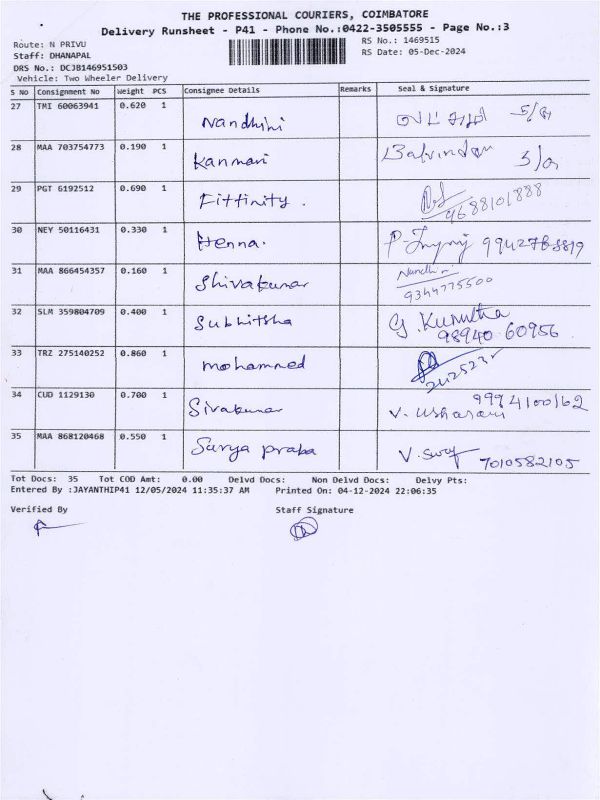 THE PROFESSIONAL COURIERS, COIMBATORE
Delivery Runsheet - P41 - Phone No.:0422-3505555 - Page No.:3
Route: N PRIVU
RS No.: 1469515
Staff: DHANAPAL
RS Date: 05-Dec-2024
DRS No.: DCJB146951503
Vehicle: Two Wheeler Delivery
S No Consignment No Weight PCS Consignee Details Remarks Seal & Signature
27 TMI 60063941 0.620 1 Nandhini
28 MAA 703754773 0.190 1 Kanmani
29 PGT 6192512 0.690 1 Fittinity. 9688101888
30 NEY 50116431 0.330 1 Henna.
31 MAA 866454357 0.160 1 Shivakumar Nandhini 9344775500
32 SLM 359804709 0.400 1 Subhitsha 98940 60956
33 TRZ 275140252 0.860 1 mohammed
34 CUD 1129130 0.700 1 Sivakumar V. Usharani 9994100162
35 MAA 868120468 0.550 1 Surya praba 7010582105
Tot Docs: 35 Tot COD Amt: 0.00 Delvd Docs: Non Delvd Docs: Delvy Pts:
Entered By :JAYANTHIP41 12/05/2024 11:35:37 AM Printed On: 04-12-2024 22:06:35
Verified By Staff Signature